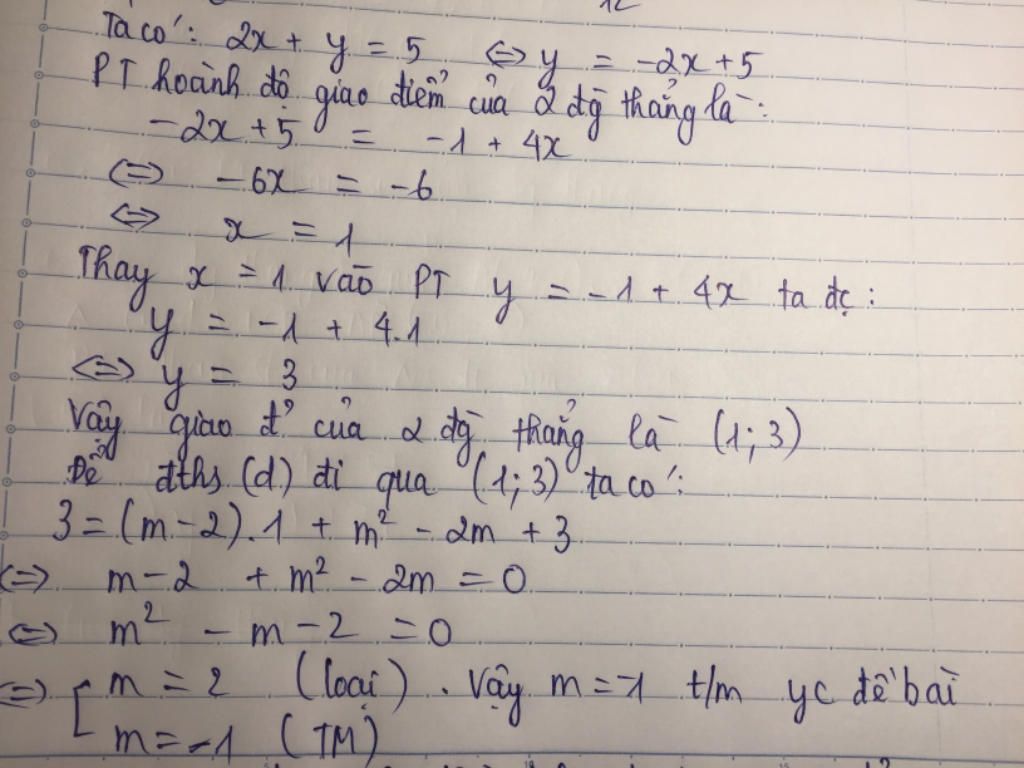 Ta có: 2x + y = 5 <=> y = -2x + 5
PT hoành độ giao điểm của 2 đg̀ thẳng là:
-2x + 5 = -1 + 4x
<=> -6x = -6
<=> x = 1
Thay x = 1 vào PT y = -1 + 4x ta đc:
y = -1 + 4.1
<=> y = 3
Vậy giao đ̉ của 2 đg̀ thẳng là (1; 3)
Để đths (d) đi qua (1; 3) ta có:
3 = (m - 2).1 + m² - 2m + 3
<=> m - 2 + m² - 2m = 0
<=> m² - m - 2 = 0
<=> [ m = 2 (loại). Vậy m = -1 t/m yc đề bài
m = -1 (TM)